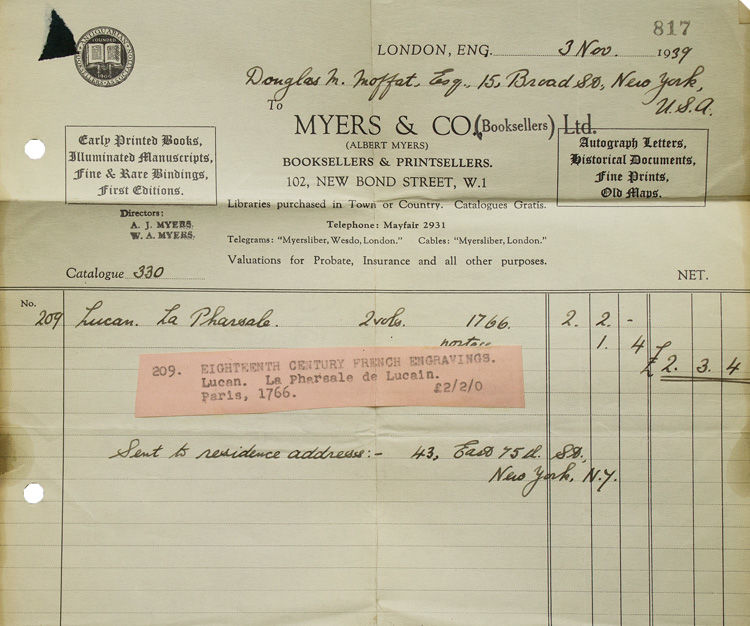 817
ANTIQUARIAN BOOKSELLERS ASSOCIATION
FOUNDED
1906
LONDON, ENG. 3 Nov. 1939
Douglas M. Moffat, Esq., 15, Broad St., New York,
U.S.A.
To
MYERS & CO. (Booksellers) Ltd.
(ALBERT MYERS)
BOOKSELLERS & PRINTSELLERS.
102, NEW BOND STREET, W.1
Early Printed Books,
Illuminated Manuscripts,
Fine & Rare Bindings,
First Editions.
Autograph Letters,
Historical Documents,
Fine Prints,
Old Maps.
Directors:
A. J. MYERS.
W. A. MYERS.
Libraries purchased in Town or Country. Catalogues Gratis.
Telephone: Mayfair 2931
Telegrams: "Myersliber, Wesdo, London." Cables: "Myersliber, London."
Valuations for Probate, Insurance and all other purposes.
Catalogue 330 NET.
No.
209 Lucan. La Pharsale. 2 vols. 1766. 2. 2. -
postage 1. 4
£ 2. 3. 4
209. EIGHTEENTH CENTURY FRENCH ENGRAVINGS.
Lucan. La Pharsale de Lucain.
Paris, 1766. £2/2/0
Sent to residence address:- 43, East 75th St.,
New York, N.Y.